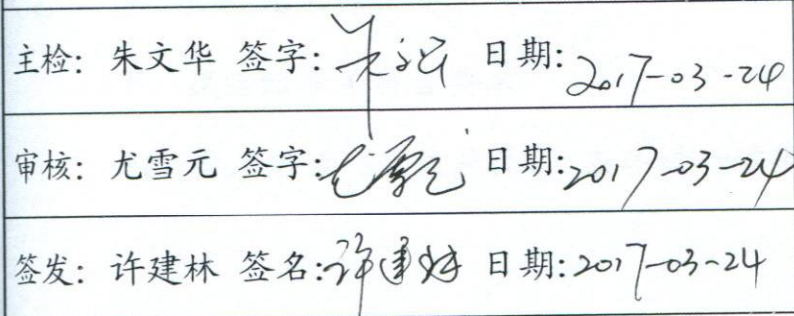 主检: 朱文华 签字: 朱文华 日期: 2017-03-24
审核: 尤雪元 签字: 尤雪元 日期: 2017-03-24
签发: 许建林 签名: 许建林 日期: 2017-03-24